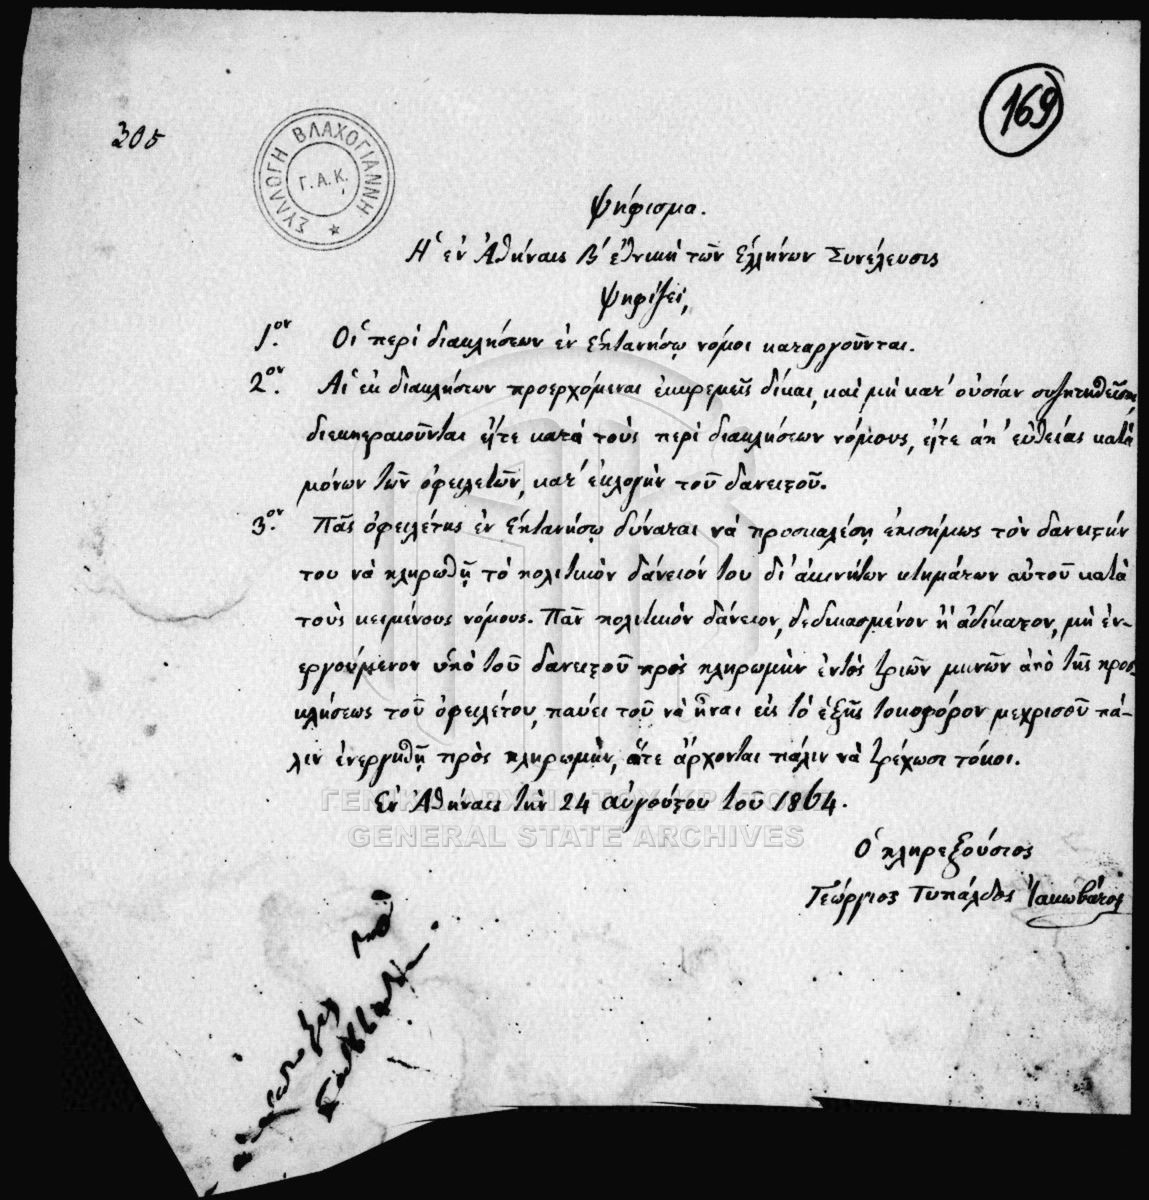 169
305
ΣΥΛΛΟΓΗ ΒΛΑΧΟΓΙΑΝΝΗ
Γ.Α.Κ.
Ψήφισμα.
Ἡ ἐν Ἀθήναις Β΄ ἐθνικὴ τῶν Ἑλλήνων Συνέλευσις
Ψηφίζει,
1ον. Οἱ περὶ διακλήσεων ἐν Ἑπτανήσῳ νόμοι καταργοῦνται.
2ον. Αἱ ἐκ διακλήσεων προερχόμεναι ἐκκρεμεῖς δίκαι, καὶ μὴ κατ' οὐσίαν συζητηθεῖσαι,
διεκπεραιοῦνται εἴτε κατὰ τοὺς περὶ διακλήσεων νόμους, εἴτε ἀπ' εὐθείας κατὰ
μόνων τῶν ὀφειλετῶν, κατ' ἐκλογὴν τοῦ δανειστοῦ.
3ον. Πᾶς ὀφειλέτης ἐν Ἑπτανήσῳ δύναται νὰ προσκαλέσῃ ἐπισήμως τὸν δανειστήν
του νὰ πληρωθῇ τὸ πολιτικὸν δάνειόν του δι' ἀκινήτων κτημάτων αὐτοῦ κατὰ
τοὺς κειμένους νόμους. Πᾶν πολιτικὸν δάνειον, δεδικασμένον ἢ ἀδίκαστον, μὴ ἐν-
εργούμενον ὑπὸ τοῦ δανειστοῦ πρὸς πληρωμὴν ἐντὸς τριῶν μηνῶν ἀπὸ τῆς προσ-
κλήσεως τοῦ ὀφειλέτου, παύει τοῦ νὰ ἦναι εἰς τὸ ἑξῆς τοκοφόρον μεχρισοῦ πά-
λιν ἐνεργηθῇ πρὸς πληρωμήν, ὅτε ἄρχονται πάλιν νὰ τρέχωσι τόκοι.
Ἐν Ἀθήναις τὴν 24 αὐγούστου τοῦ 1864.
ΓΕΝΙΚΑ ΑΡΧΕΙΑ ΤΟΥ ΚΡΑΤΟΥΣ
GENERAL STATE ARCHIVES
Ὁ πληρεξούσιος
Γεώργιος Τυπάλδος Ἰακωβάτος